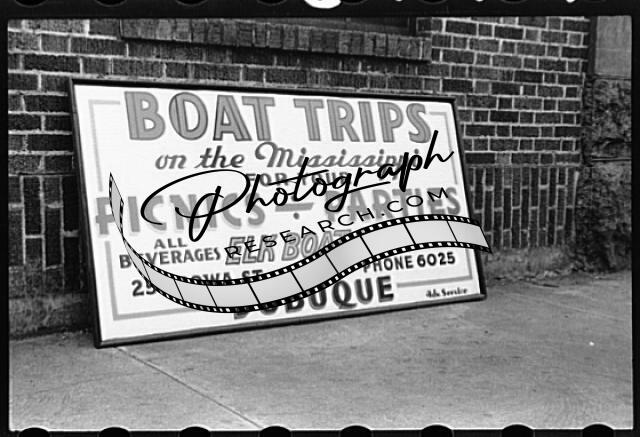 BOAT TRIPS
on the Mississippi
FOR YOUR
PICNICS - PARTIES
Photograph
RESEARCH.COM
ALL
BEVERAGES
ELK BOAT
IOWA ST.
PHONE 6025
DUBUQUE
Ads Service